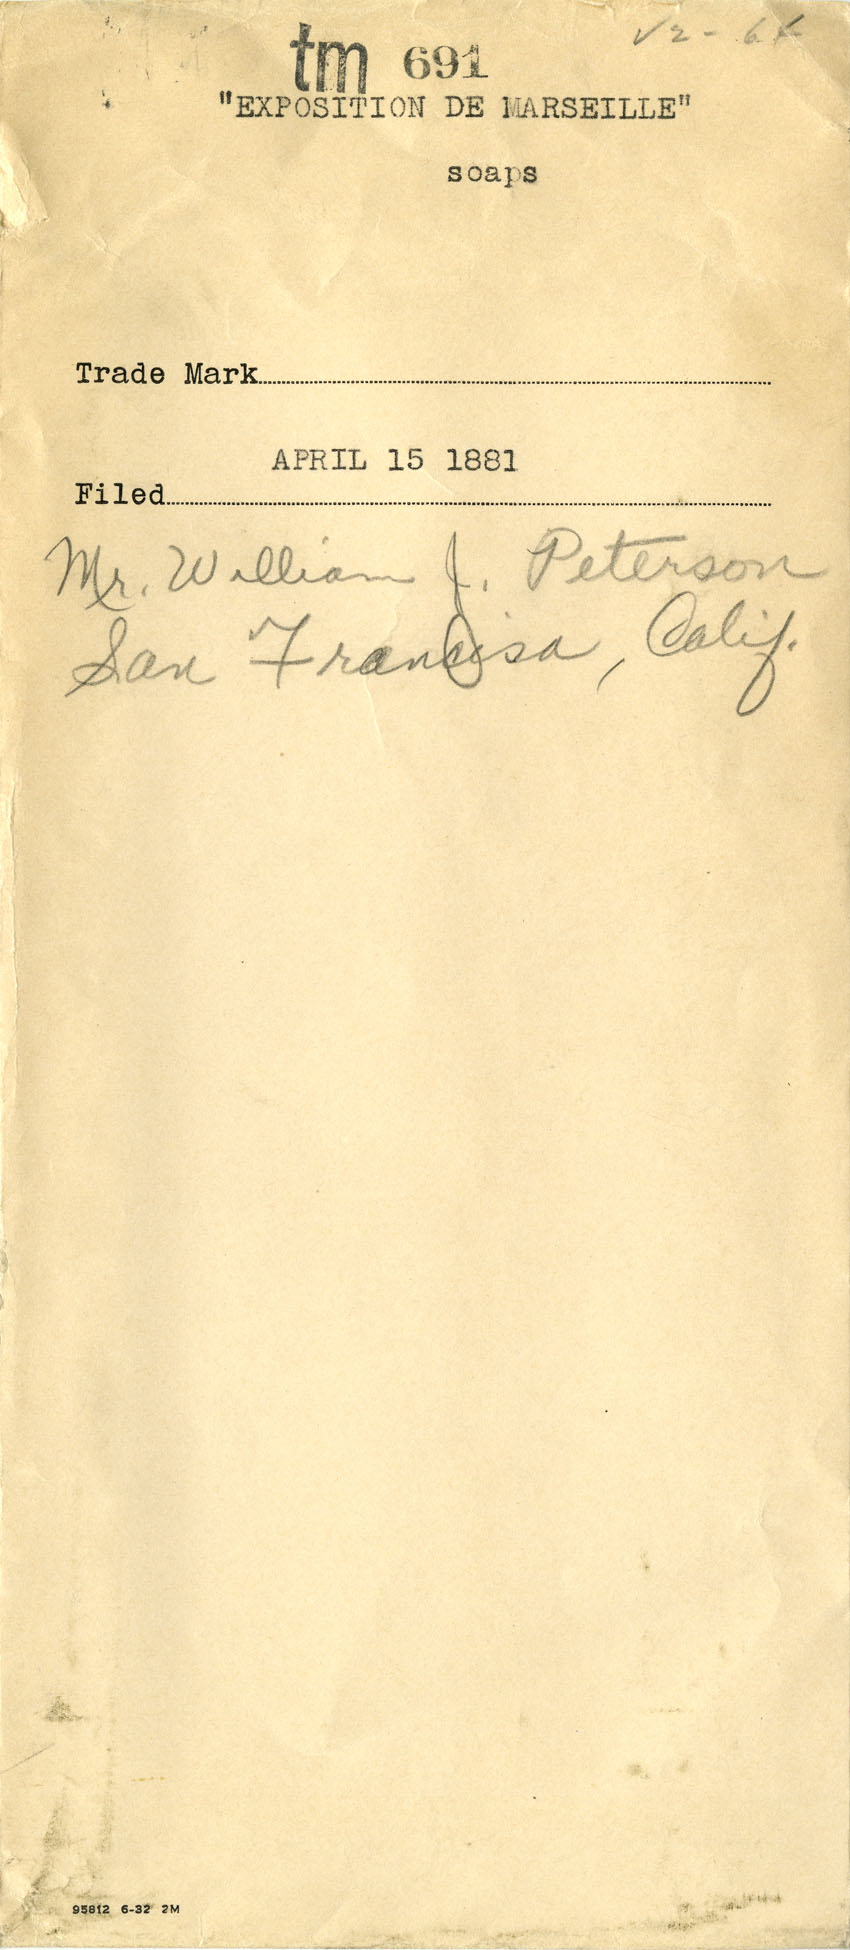 tm 691
"EXPOSITION DE MARSEILLE"
soaps
Trade Mark
APRIL 15 1881
Filed
Mr. William J. Peterson
San Francisco, Calif.
95812 6-32 2M